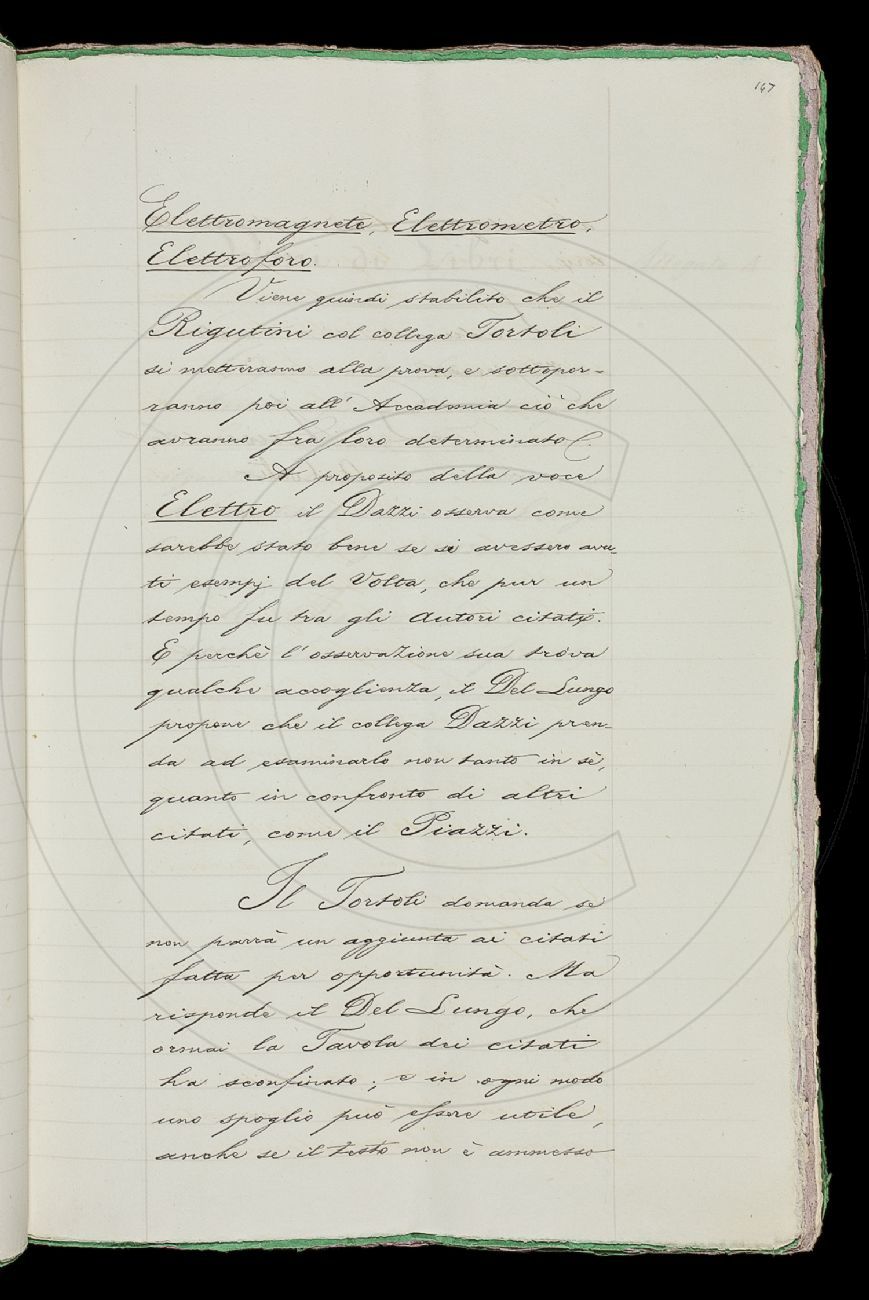 147
Elettromagnete, Elettrometro,
Elettroforo.
Viene quindi stabilito che il
Rigutini col collega Tortoli
si metteranno alla prova, e sottopor-
ranno poi all'Accademia ciò che
avranno fra loro determinato.
A proposito della voce
Elettro il Dazzi osserva come
sarebbe stato bene se si avessero avu-
ti esempj del Volta, che pur un
tempo fu tra gli autori citati.
E perchè l'osservazione sua trova
qualche accoglienza, il Del Lungo
propone che il collega Dazzi pren-
da ad esaminarlo non tanto in sè,
quanto in confronto di altri
citati, come il Piazzi.
Il Tortoli domanda se
non parrà un aggiunta ai citati
fatta per opportunità. Ma
risponde il Del Lungo, che
ormai la Tavola dei citati
ha sconfinato; e in ogni modo
uno spoglio può essere utile,
anche se il testo non è ammesso